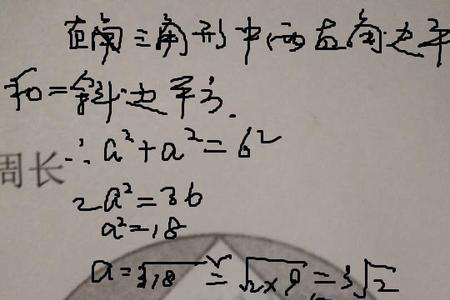 在直角三角形中两直角边平
和=斜边平方.
∴a²+a²=6²
周长
2a²=36
a²=18
a=√18=√2×9=3√2